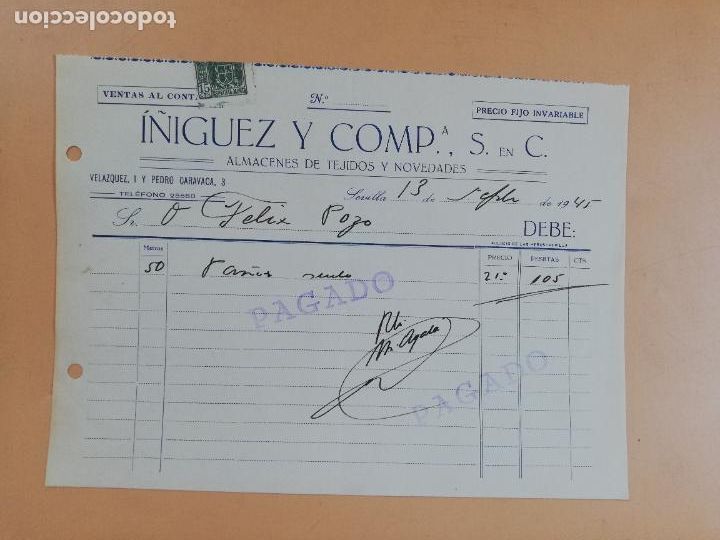 todocoleccion
15
VENTAS AL CONT
N.º
PRECIO FIJO INVARIABLE
ÍÑIGUEZ Y COMP.ᴬ, S. EN C.
ALMACENES DE TEJIDOS Y NOVEDADES
VELAZQUEZ, 1 Y PEDRO CARAVACA, 3
TELÉFONO 25550
Sevilla 13 de Sepbre de 1945
Sr. D Felix Pozo DEBE:
Metros PRECIO PESETAS CTS.
50 21= 105
PAGADO
Rbi
M. Ayala
PAGADO